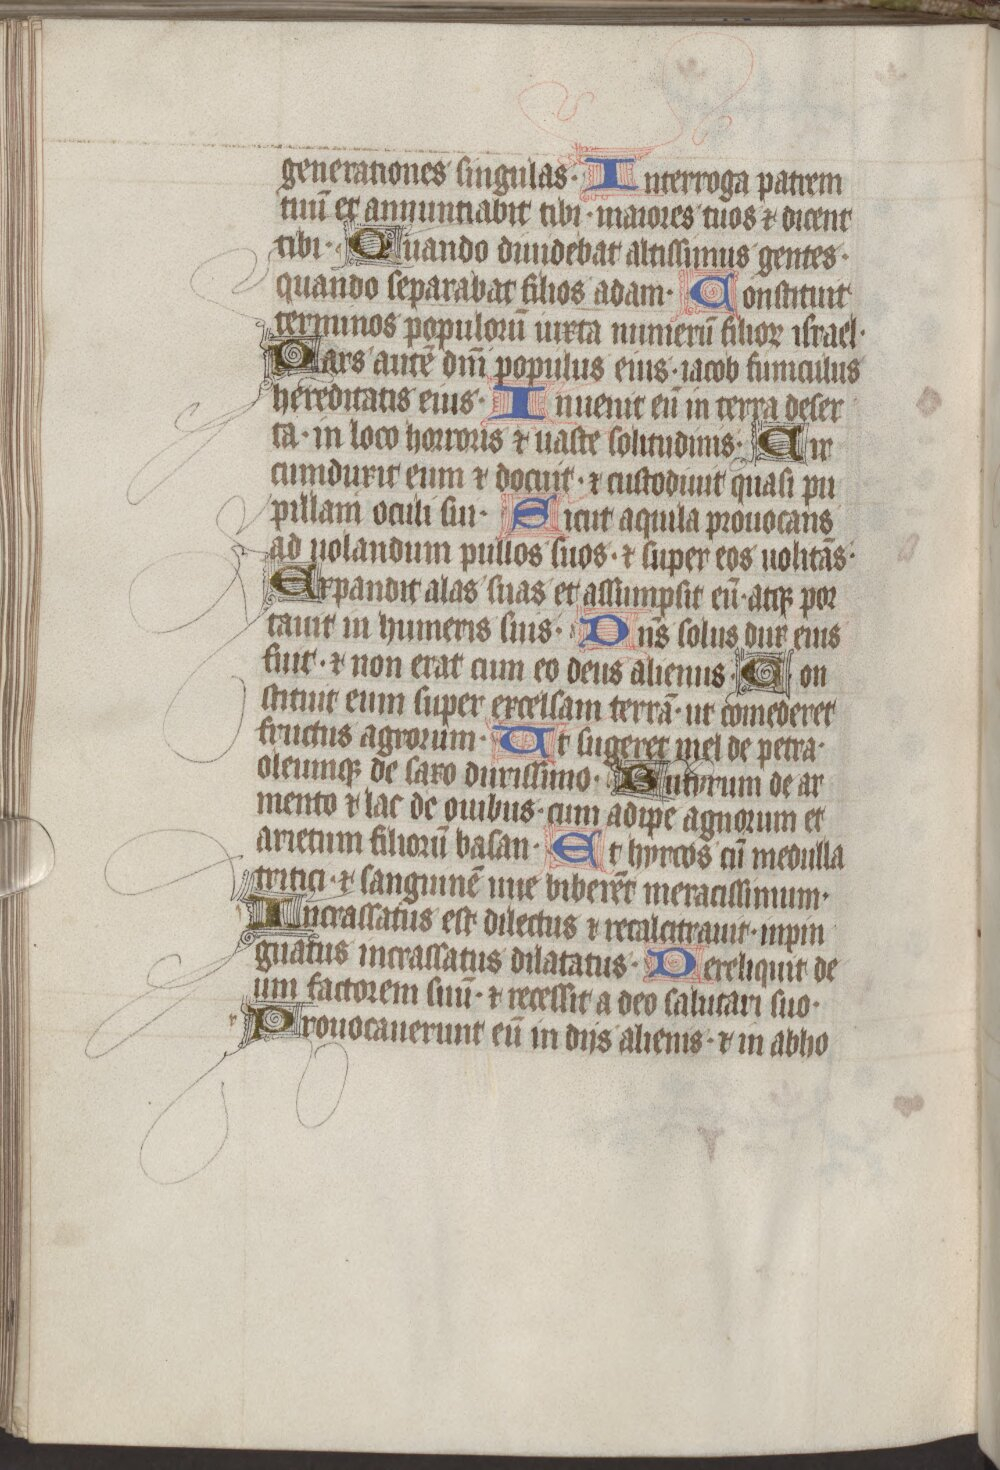 generationes singulas· Interroga patrem
tuū et annuntiabit tibi· maiores tuos ⁊ dicent
tibi· Quando diuidebat altissimus gentes·
quando separabat filios adam· Constituit
terminos populorū iuxta numerū filioꝝ israel·
Pars autē dn̄i populus eius· iacob funiculus
hereditatis eius· Inuenit eū in terra deser
ta· in loco horroris ⁊ uaste solitudinis· Cir
cumduxit eum ⁊ docuit· ⁊ custodiuit quasi pu
pillam oculi sui· Sicut aquila prouocans
ad uolandum pullos suos· ⁊ super eos uolitās·
Expandit alas suas et assumpsit eū· atqꝫ por
tauit in humeris suis· Dn̄s solus dux eius
fuit· ⁊ non erat cum eo deus alienus· Con
stituit eum super excelsam terrā· ut comederet
fructus agrorum· Ut sugeret mel de petra·
oleumqꝫ de saxo durissimo· Butyrum de ar
mento ⁊ lac de ouibus· cum adipe agnorum et
arietum filiorū basan· Et hyrcos cū medulla
tritici· ⁊ sanguinē uue biberēt meracissimum·
Incrassatus est dilectus ⁊ recalcitrauit· inpin
guatus incrassatus dilatatus· Dereliquit de
um factorem suū· ⁊ recessit a deo salutari suo·
Prouocauerunt eū in dijs alienis· ⁊ in abho